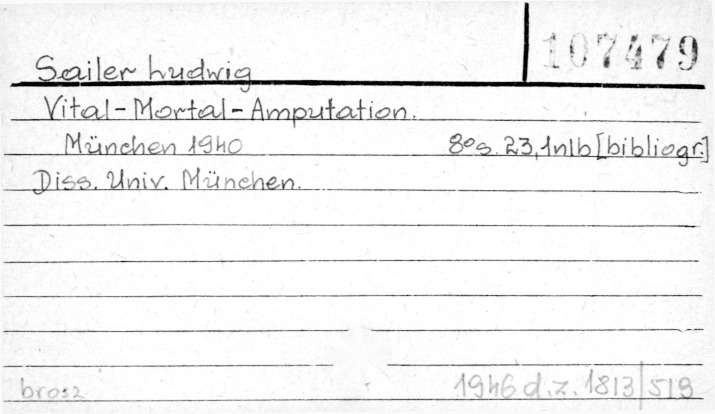 107479
Sailer Ludwig
Vital-Mortal-Amputation.
München 1940 8° s. 23, 1 nlb [bibliogr.]
Diss. Univ. München.
brosz 1946 d.z. 1813/519